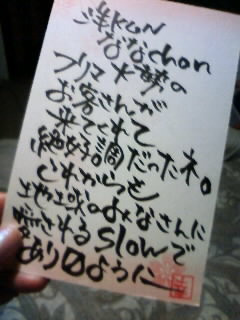 洋KUN
ななchan
フリマ大勢の
お客さんが
来てくれて
絶好調だったネ。
これからも
地域のみなさんに
愛されるslowで
ありますように